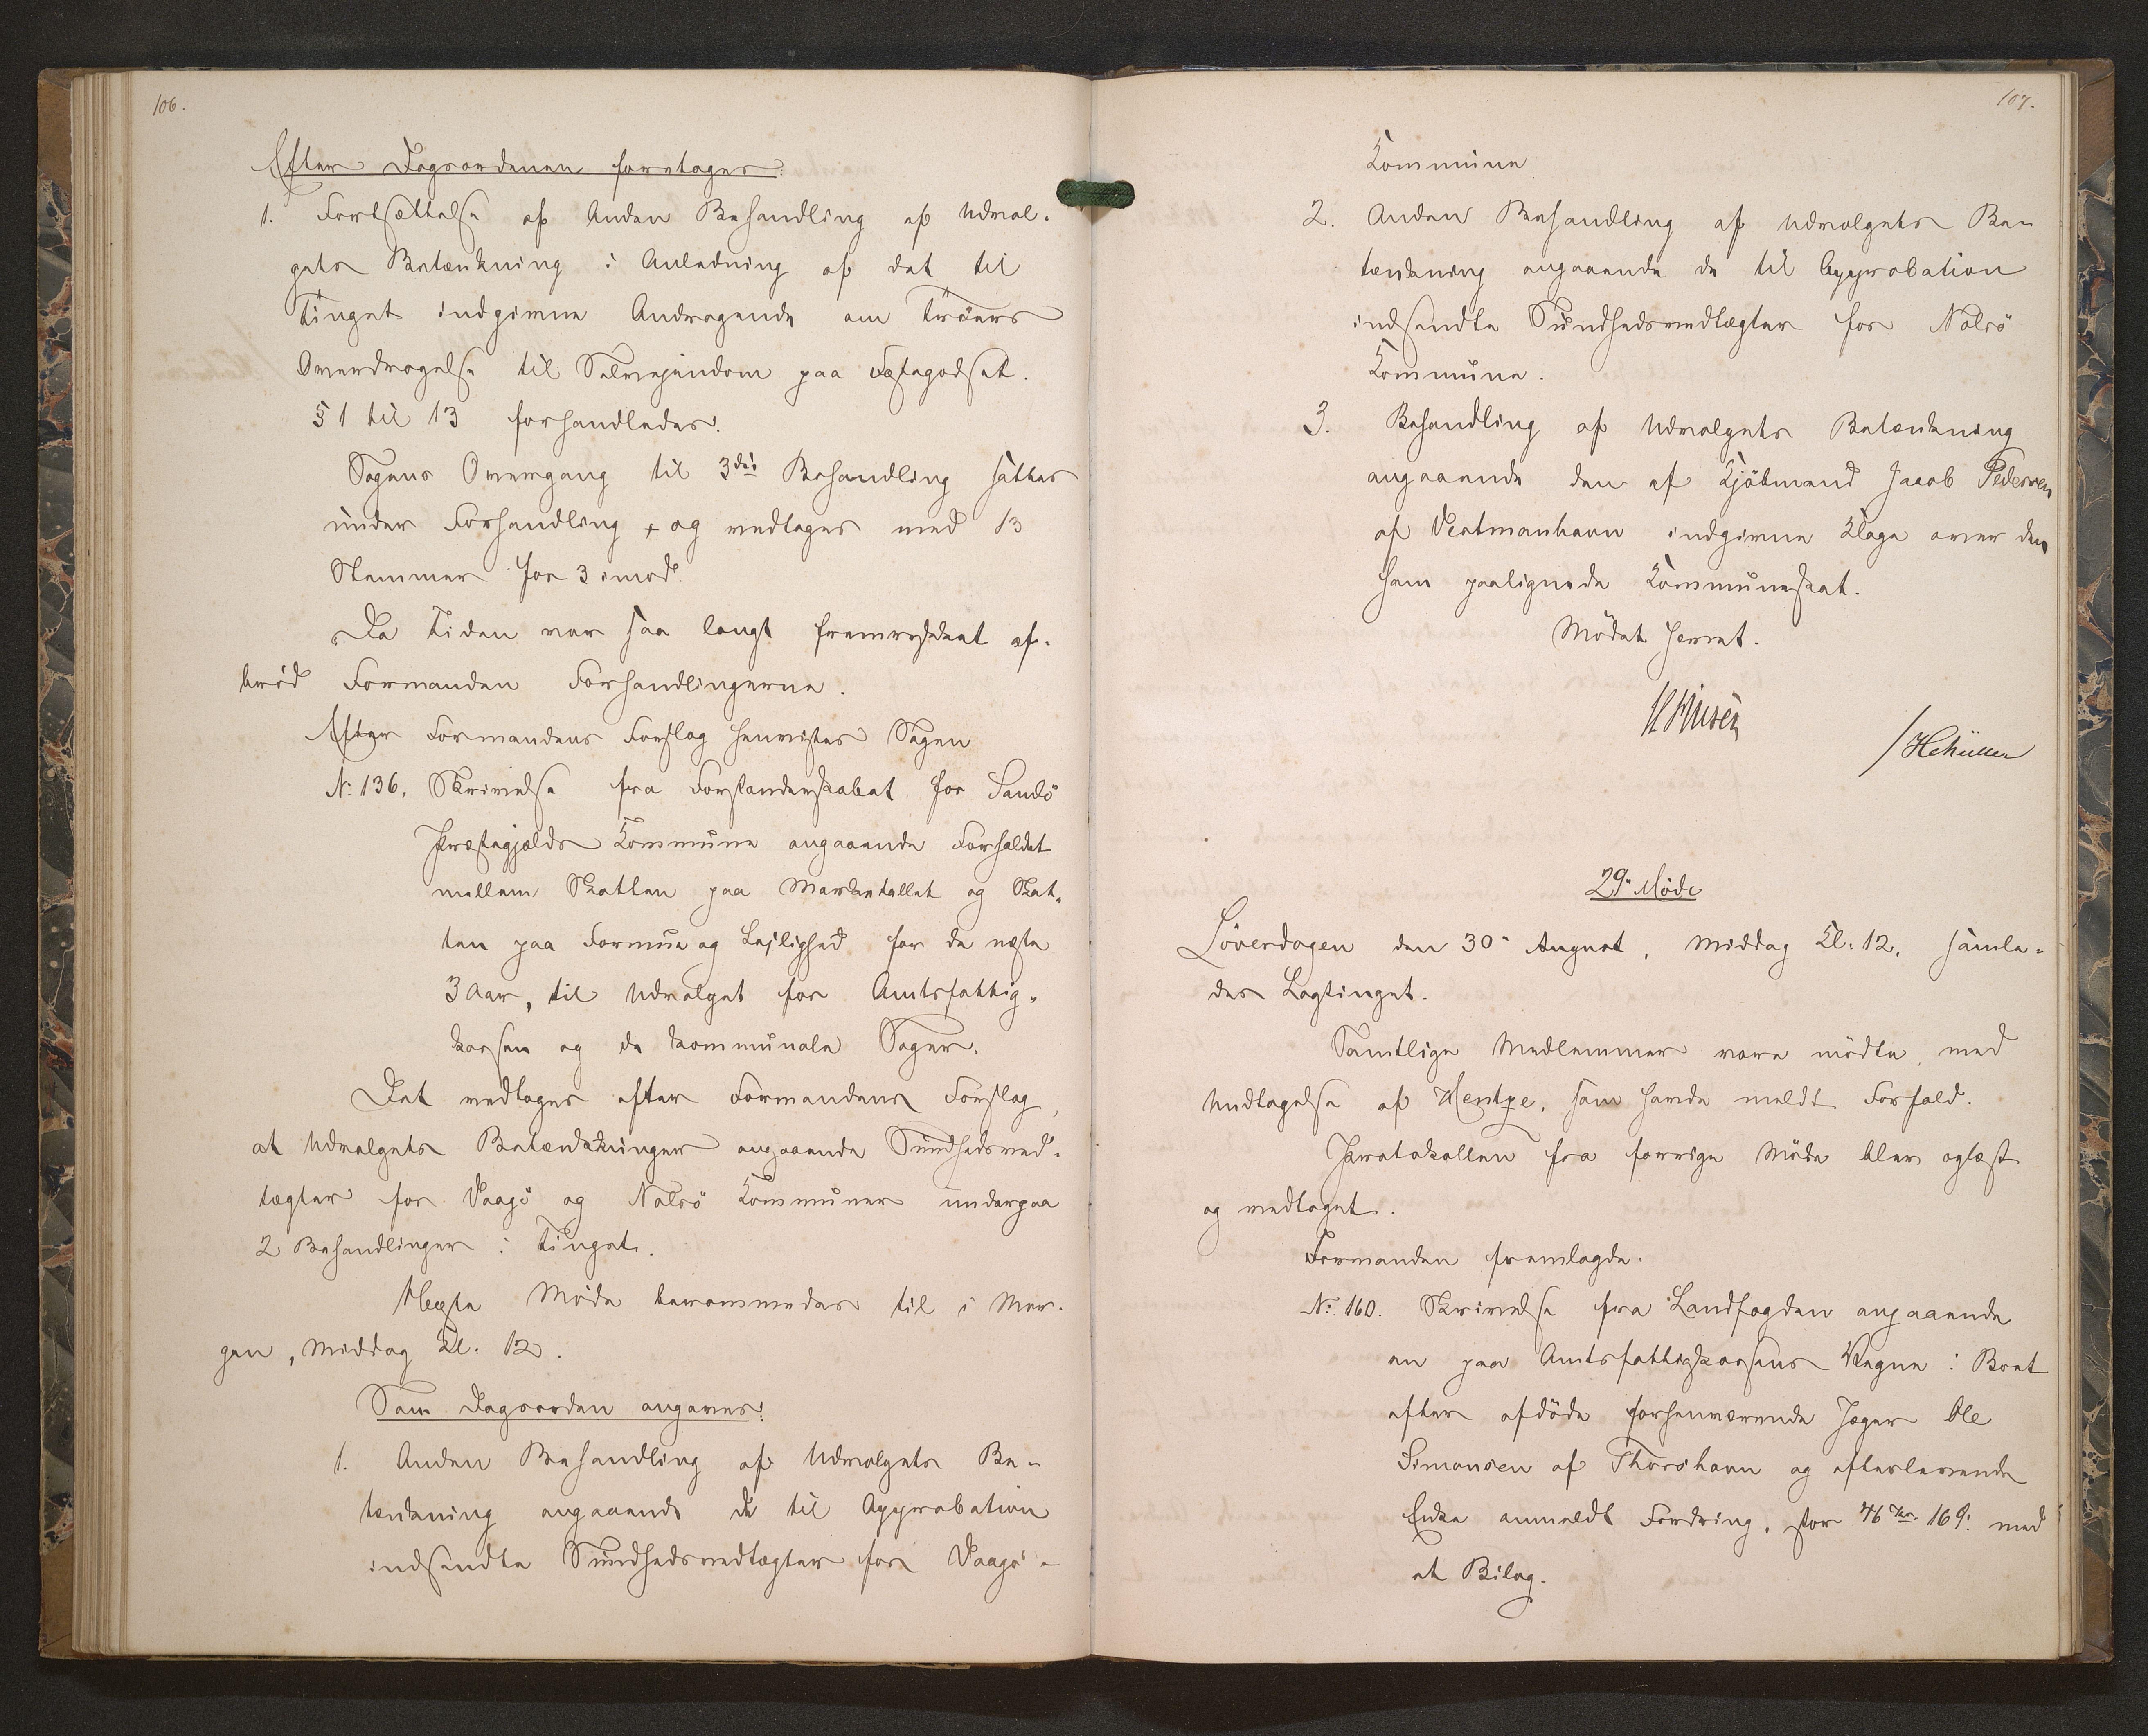 106.
Efter Dagsordenen foretoges:
1. Fortsættelse af Anden Behandling af Udval-
gets Betænkning i Anledning af det til
Tinget indgivne Andragende om Trøers
Overdragelse til Selvejendom paa Fæstegodset.
§ 1 til 13 forhandledes.
Sagens Overgang til 3die Behandling sattes
under Forhandling + og vedtoges med 13
Stemmer for 3 imod.
Da Tiden var saa langt fremrykket af-
brød Formanden Forhandlingerne.
Efter Formandens Forslag henvistes Sagen
No. 136. Skrivelse fra Forstanderskabet for Sandø
Præstegjælds Kommune angaaende Forholdet
mellem Skatten paa Marketallet og Skat-
ten paa Formue og Lejlighed for de næste
3 Aar, til Udvalget for Amtsfattig-
kassen og de kommunale Sager.
Det vedtoges efter Formandens Forslag,
at Udvalgets Betænkninger angaaende Sundhedsved-
tægter for Vaagø og Nolsø Kommuner undergaa
2 Behandlinger i Tinget.
Næste Møde berammedes til i Mor-
gen, Middag Kl. 12.
Som Dagsorden angaves:
1. Anden Behandling af Udvalgets Be-
tænkning angaaende de til Approbation
indsendte Sundhedsvedtægter for Vaagø-
107.
Kommune
2. Anden Behandling af Udvalgets Be-
tænkning angaaende de til Approbation
indsendte Sundhedsvedtægter for Nolsö
Kommune.
3. Behandling af Udvalgets Betænkning
angaaende den af Kjøbmand Jacob Pedersen
af Vestmanhavn indgivne Klage over den
ham paalignede Kommuneskat.
Mødet hævet.
/HCMüller
29. Møde
Löverdagen den 30. August, Middag Kl. 12, samle-
des Lagtinget.
Samtlige Medlemmer vare mødte, med
Undtagelse af Hentze, som havde meldt Forfald.
Protokollen fra forrige Møde blev oplæst
og vedtaget.
Formanden fremlagde:
No. 160. Skrivelse fra Landfogden angaaende
en paa Amtsfattigkassens Vegne i Boet
efter afdøde forhenværende Jæger Ole
Simonsen af Thorshavn og efterlevende
Enke anmeldt Fordring, stor 76 Kr. 16 Ø. med
et Bilag.